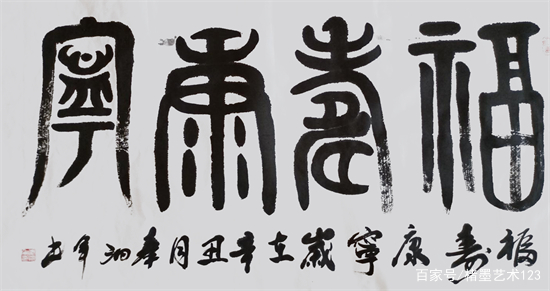 福壽康寧
福壽康寧歲在辛丑月春
百家号/楮墨艺术123